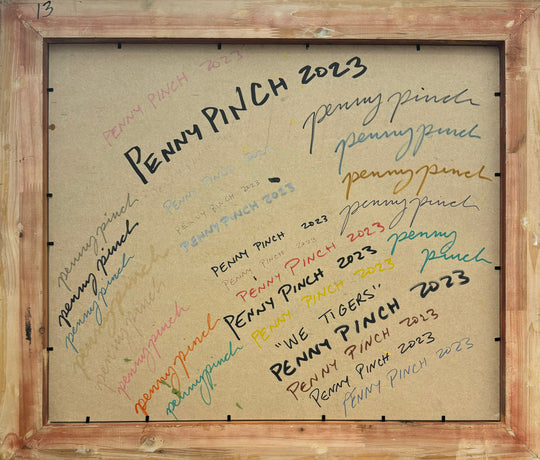 13
PENNY PINCH 2023
PENNY PINCH 2023
penny pinch
penny pinch
PENNY PINCH 2023
penny pinch
PENNY PINCH 2023
PENNY PINCH 2023
penny pinch
penny pinch
penny pinch
penny pinch
penny pinch
penny pinch
penny pinch
penny pinch
penny pinch
penny pinch
PENNY PINCH 2023
PENNY PINCH 2023
PENNY PINCH 2023
PENNY PINCH 2023
PENNY PINCH 2023
"WE TIGERS"
PENNY PINCH 2023
PENNY PINCH 2023
PENNY PINCH 2023
PENNY PINCH 2023